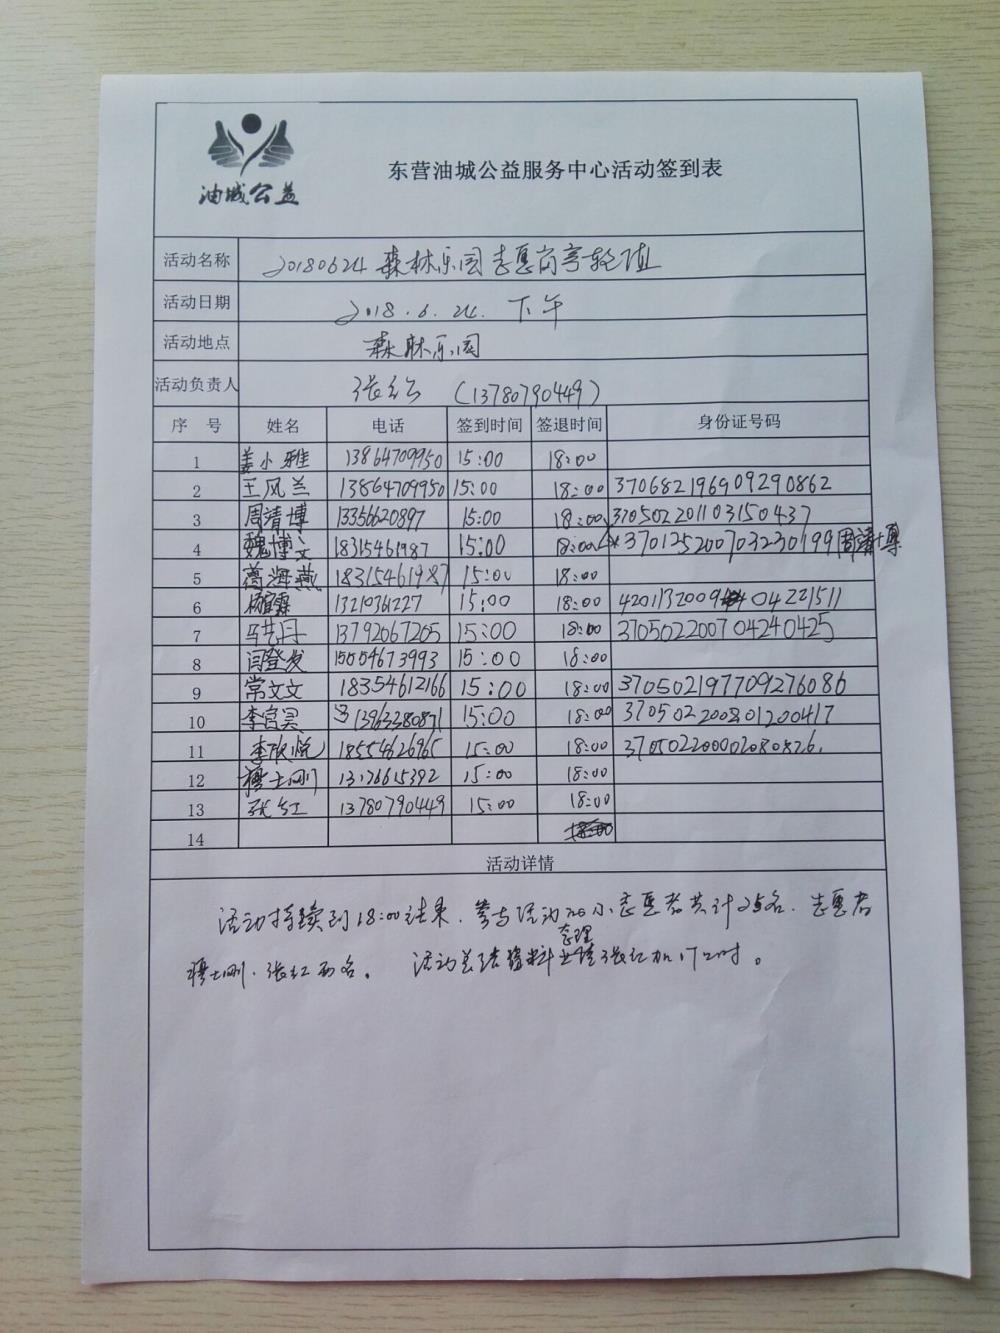 油城公益
东营油城公益服务中心活动签到表
活动名称 20180624 森林乐园志愿岗亭轮值
活动日期 2018.6.24. 下午
活动地点 森林乐园
活动负责人 张红 (13780790449)
序 号 姓名 电话 签到时间 签退时间 身份证号码
1 姜小雅 13864709950 15:00 18:00
2 王风兰 13864709950 15:00 18:00 370682196909290862
3 周靖博 13356620897 15:00 18:00 370502201103150437
4 魏博文 18315461987 15:00 18:00 370125200703230199 周靖博
5 葛海燕 18315461987 15:00 18:00
6 13210361227 15:00 18:00 420113200904221511
7 马艺丹 13792067205 15:00 18:00 370502200704240425
8 闫登发 15554673993 15:00 18:00
9 常文文 18354612166 15:00 18:00 370502197709276086
10 李宫昊 13963380871 15:00 18:00 370502200801200417
11 李欣悦 18554626965 15:00 18:00 370502200002080826.
12 穆士刚 15:00 18:00
13 张红 13780790449 15:00 18:00
14
活动详情
活动持续到18:00结束.参与活动的小志愿者共计25名.志愿者
整理
穆士刚.张红两名。 活动总结资料 张红加1个小时。